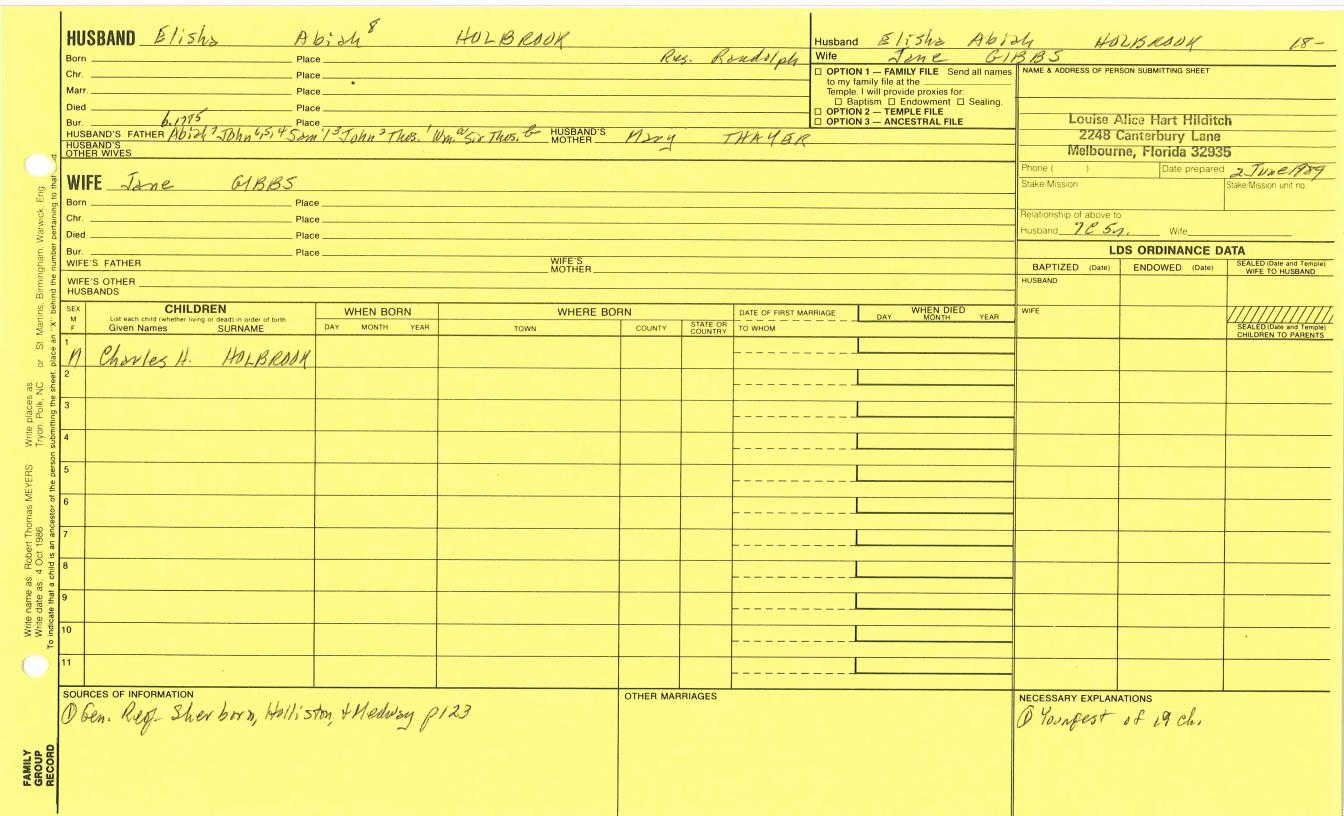 HUSBAND Elisha Abiah 8 HOLBROOK
Born Place Res. Randolph
Chr. Place
Marr. Place
Died Place
Bur. Place
b. 1775
HUSBAND'S FATHER Abiah 7 John 6,5,4 Sam'l 3 John 2 Thos. 1 Wm. a Sir Thos. b HUSBAND'S MOTHER Mary THAYER
HUSBAND'S OTHER WIVES
WIFE Jane GIBBS
Born Place
Chr. Place
Died Place
Bur. Place
WIFE'S FATHER WIFE'S MOTHER
WIFE'S OTHER HUSBANDS
Husband Elisha Abiah HOLBROOK 18-
Wife Jane GIBBS
OPTION 1 — FAMILY FILE Send all names
to my family file at the
Temple. I will provide proxies for:
Baptism Endowment Sealing.
OPTION 2 — TEMPLE FILE
OPTION 3 — ANCESTRAL FILE
NAME & ADDRESS OF PERSON SUBMITTING SHEET
Louise Alice Hart Hilditch
2248 Canterbury Lane
Melbourne, Florida 32935
Phone ( ) Date prepared 2 June 1989
Stake/Mission Stake/Mission unit no.
Relationship of above to
Husband 7C 5r. Wife
LDS ORDINANCE DATA
BAPTIZED (Date) ENDOWED (Date) SEALED (Date and Temple) WIFE TO HUSBAND
HUSBAND
WIFE
SEALED (Date and Temple) CHILDREN TO PARENTS
SEX M F
CHILDREN
List each child (whether living or dead) in order of birth
Given Names SURNAME
WHEN BORN
DAY MONTH YEAR
WHERE BORN
TOWN COUNTY STATE OR COUNTRY
DATE OF FIRST MARRIAGE
TO WHOM
WHEN DIED
DAY MONTH YEAR
1 M Charles H. HOLBROOK
2
3
4
5
6
7
8
9
10
11
SOURCES OF INFORMATION
① Gen. Reg. Sherborn, Holliston, & Medway p123
OTHER MARRIAGES
NECESSARY EXPLANATIONS
① Youngest of 19 ch.
Write name as: Robert Thomas MEYERS Write places as: Tryon, Polk, NC or St. Martins, Birmingham, Warwick, Eng.
Write date as: 4 Oct 1986
To indicate that a child is an ancestor of the person submitting the sheet, place an "X" behind the number pertaining to that
FAMILY GROUP RECORD